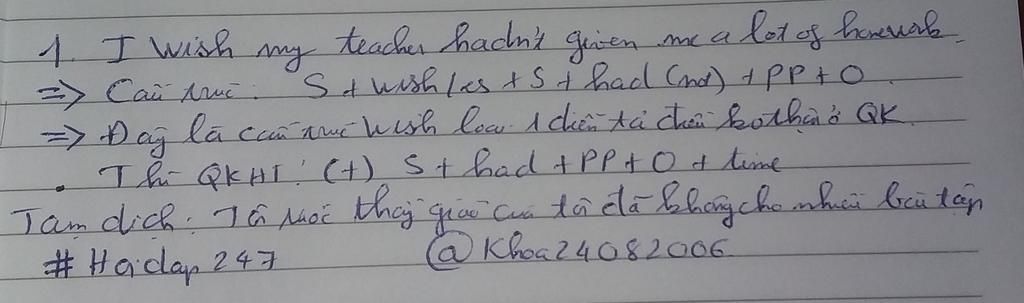 1. I wish my teacher hadn't given me a lot of homework.
=> Cấu trúc: S + wish/es + S + had (not) + PP + O
=> Đây là cấu trúc wish loại 1 diễn tả điều ko thật ở QK.
. Thì QKHT: (+) S + had + PP + O + time
Tạm dịch: Tôi ước thầy giáo của tôi đã không cho nhiều bài tập
# Hoidap247 @Khoa24082006